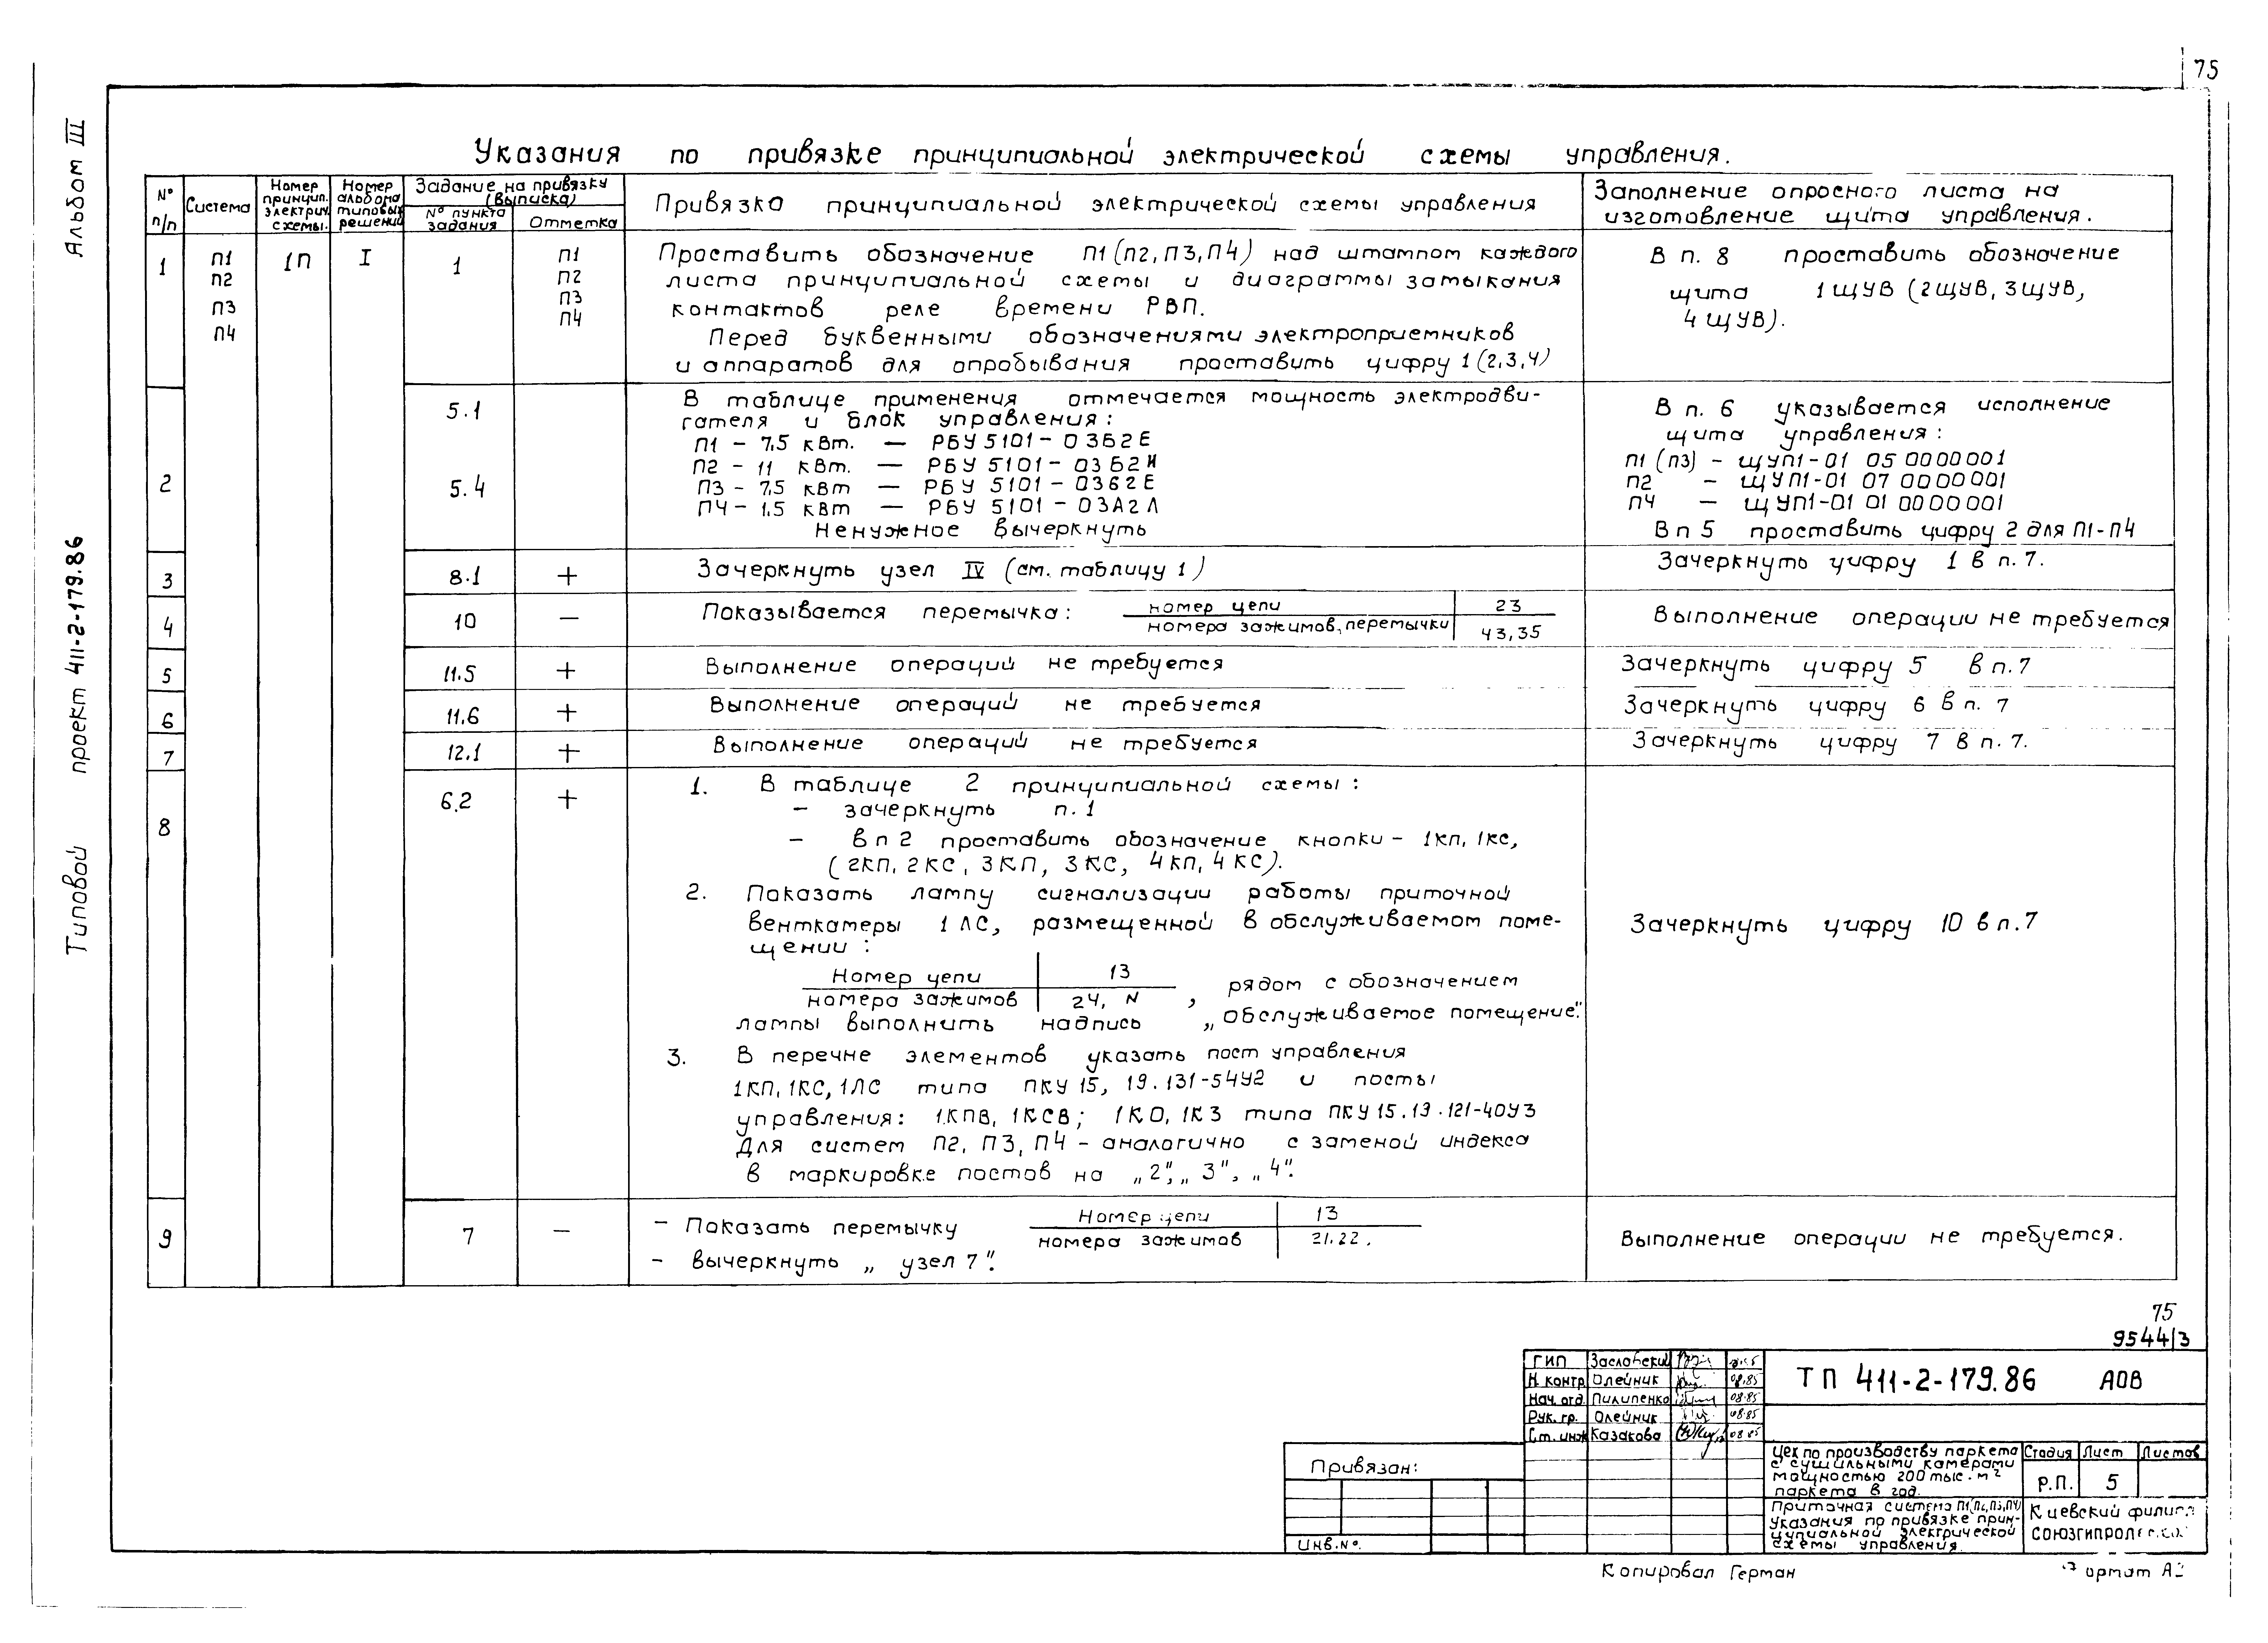 75
Альбом III
Типовой проект 411-2-179.86
Указания по привязке принципиальной электрической схемы управления.
№ п/п
Система
Номер принцип. электрич. схемы.
Номер альбома типовых решений
Задание на привязку (выписка)
№ пункта задания
Отметка
Привязка принципиальной электрической схемы управления
Заполнение опросного листа на
изготовление щита управления.
1
П1
П2
П3
П4
1П
I
1
П1
П2
П3
П4
Проставить обозначение П1 (П2, П3, П4) над штампом каждого
листа принципиальной схемы и диаграммы замыкания
контактов реле времени РВП.
Перед буквенными обозначениями электроприемников
и аппаратов для опробывания проставить цифру 1 (2,3,4)
В п. 8 проставить обозначение
щита 1 ЩУВ (2ЩУВ, 3ЩУВ,
4 ЩУВ).
2
5.1
5.4
В таблице применения отмечается мощность электродви-
гателя и блок управления:
П1 - 7,5 кВт. — РБУ 5101 - 03Б2Е
П2 - 11 кВт. — РБУ 5101 - 03Б2И
П3 - 7,5 кВт — РБУ 5101 - 03Б2Е
П4 - 1.5 кВт — РБУ 5101 - 03А2Л
Ненужное вычеркнуть
В п. 6 указывается исполнение
щита управления:
П1 (П3) - ЩУП1-01 05 0000001
П2 - ЩУП1-01 07 0000001
П4 — ЩУП1-01 01 0000001
В п 5 проставить цифру 2 для П1-П4
3
8.1
+
Зачеркнуть узел IV (см. таблицу 1)
Зачеркнуть цифру 1 в п. 7.
4
10
—
Показывается перемычка:
номер цепи 23
номера зажимов, перемычки 43,35
Выполнение операции не требуется
5
11.5
+
Выполнение операций не требуется
Зачеркнуть цифру 5 в п. 7
6
11.6
+
Выполнение операций не требуется
Зачеркнуть цифру 6 в п. 7
7
12.1
+
Выполнение операций не требуется
Зачеркнуть цифру 7 в п. 7.
8
6.2
+
1. В таблице 2 принципиальной схемы:
— зачеркнуть п. 1
— в п 2 проставить обозначение кнопки - 1КП, 1КС,
(2КП, 2КС, 3КП, 3КС, 4КП, 4КС).
2. Показать лампу сигнализации работы приточной
венткамеры 1 ЛС, размещенной в обслуживаемом поме-
щении:
Номер цепи 13
номера зажимов 24, N , рядом с обозначением
лампы выполнить надпись „обслуживаемое помещение".
3. В перечне элементов указать пост управления
1КП, 1КС, 1ЛС типа ПКУ 15, 19.131-54У2 и посты
управления: 1КПВ, 1КСВ; 1КО, 1КЗ типа ПКУ 15.19.121-40У3
Для систем П2, П3, П4 - аналогично с заменой индекса
в маркировке постов на „2", „3", „4".
Зачеркнуть цифру 10 в п. 7
9
7
—
— Показать перемычку
Номер цепи 13
номера зажимов 21.22.
— вычеркнуть „ узел 7".
Выполнение операции не требуется.
75
9544/3
ГИП Заславский
Н. контр. Олейник 08.85
Нач. отд. Пилипенко 08.85
Рук. гр. Олейник 08.85
Ст. инж Казакова 08.85
ТП 411-2-179.86 АОВ
Цех по производству паркета
с сушильными камерами
мощностью 200 тыс. м²
паркета в год.
Стадия Лист Листов
Р.П. 5
Приточная система П1, П2, П3, П4
Указания по привязке прин-
ципиальной электрической
схемы управления.
Киевский филиал
Привязан:
Инв. №.
Копировал Герман